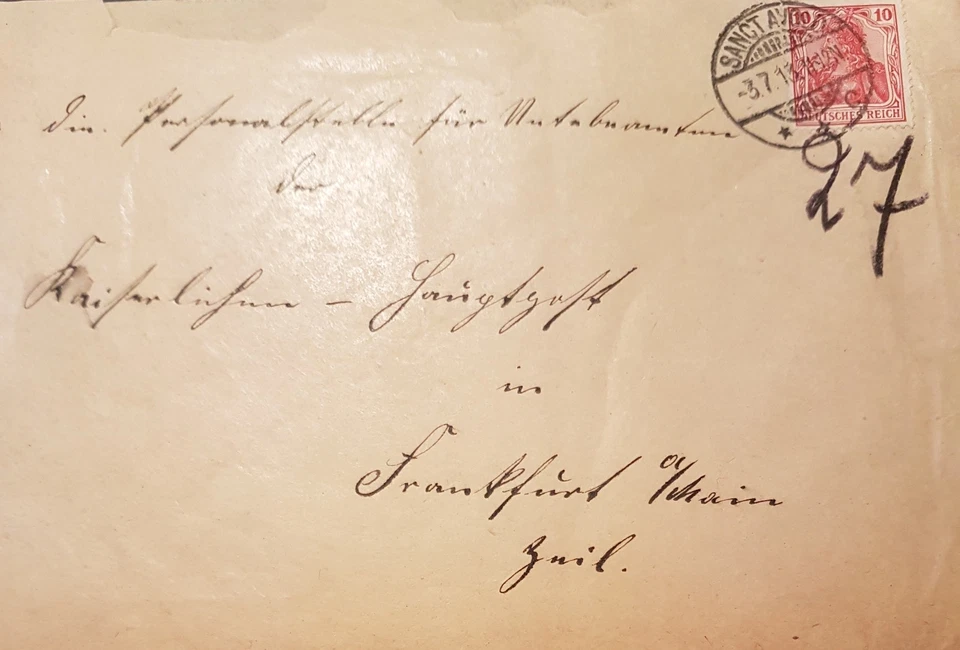 10 10
SANCT AV
-3.7.1
DEUTSCHES REICH
27
die Personalstelle für Unterbeamten
der
Kaiserlichen – Hauptpost
in
Frankfurt a/Main
Zeil.